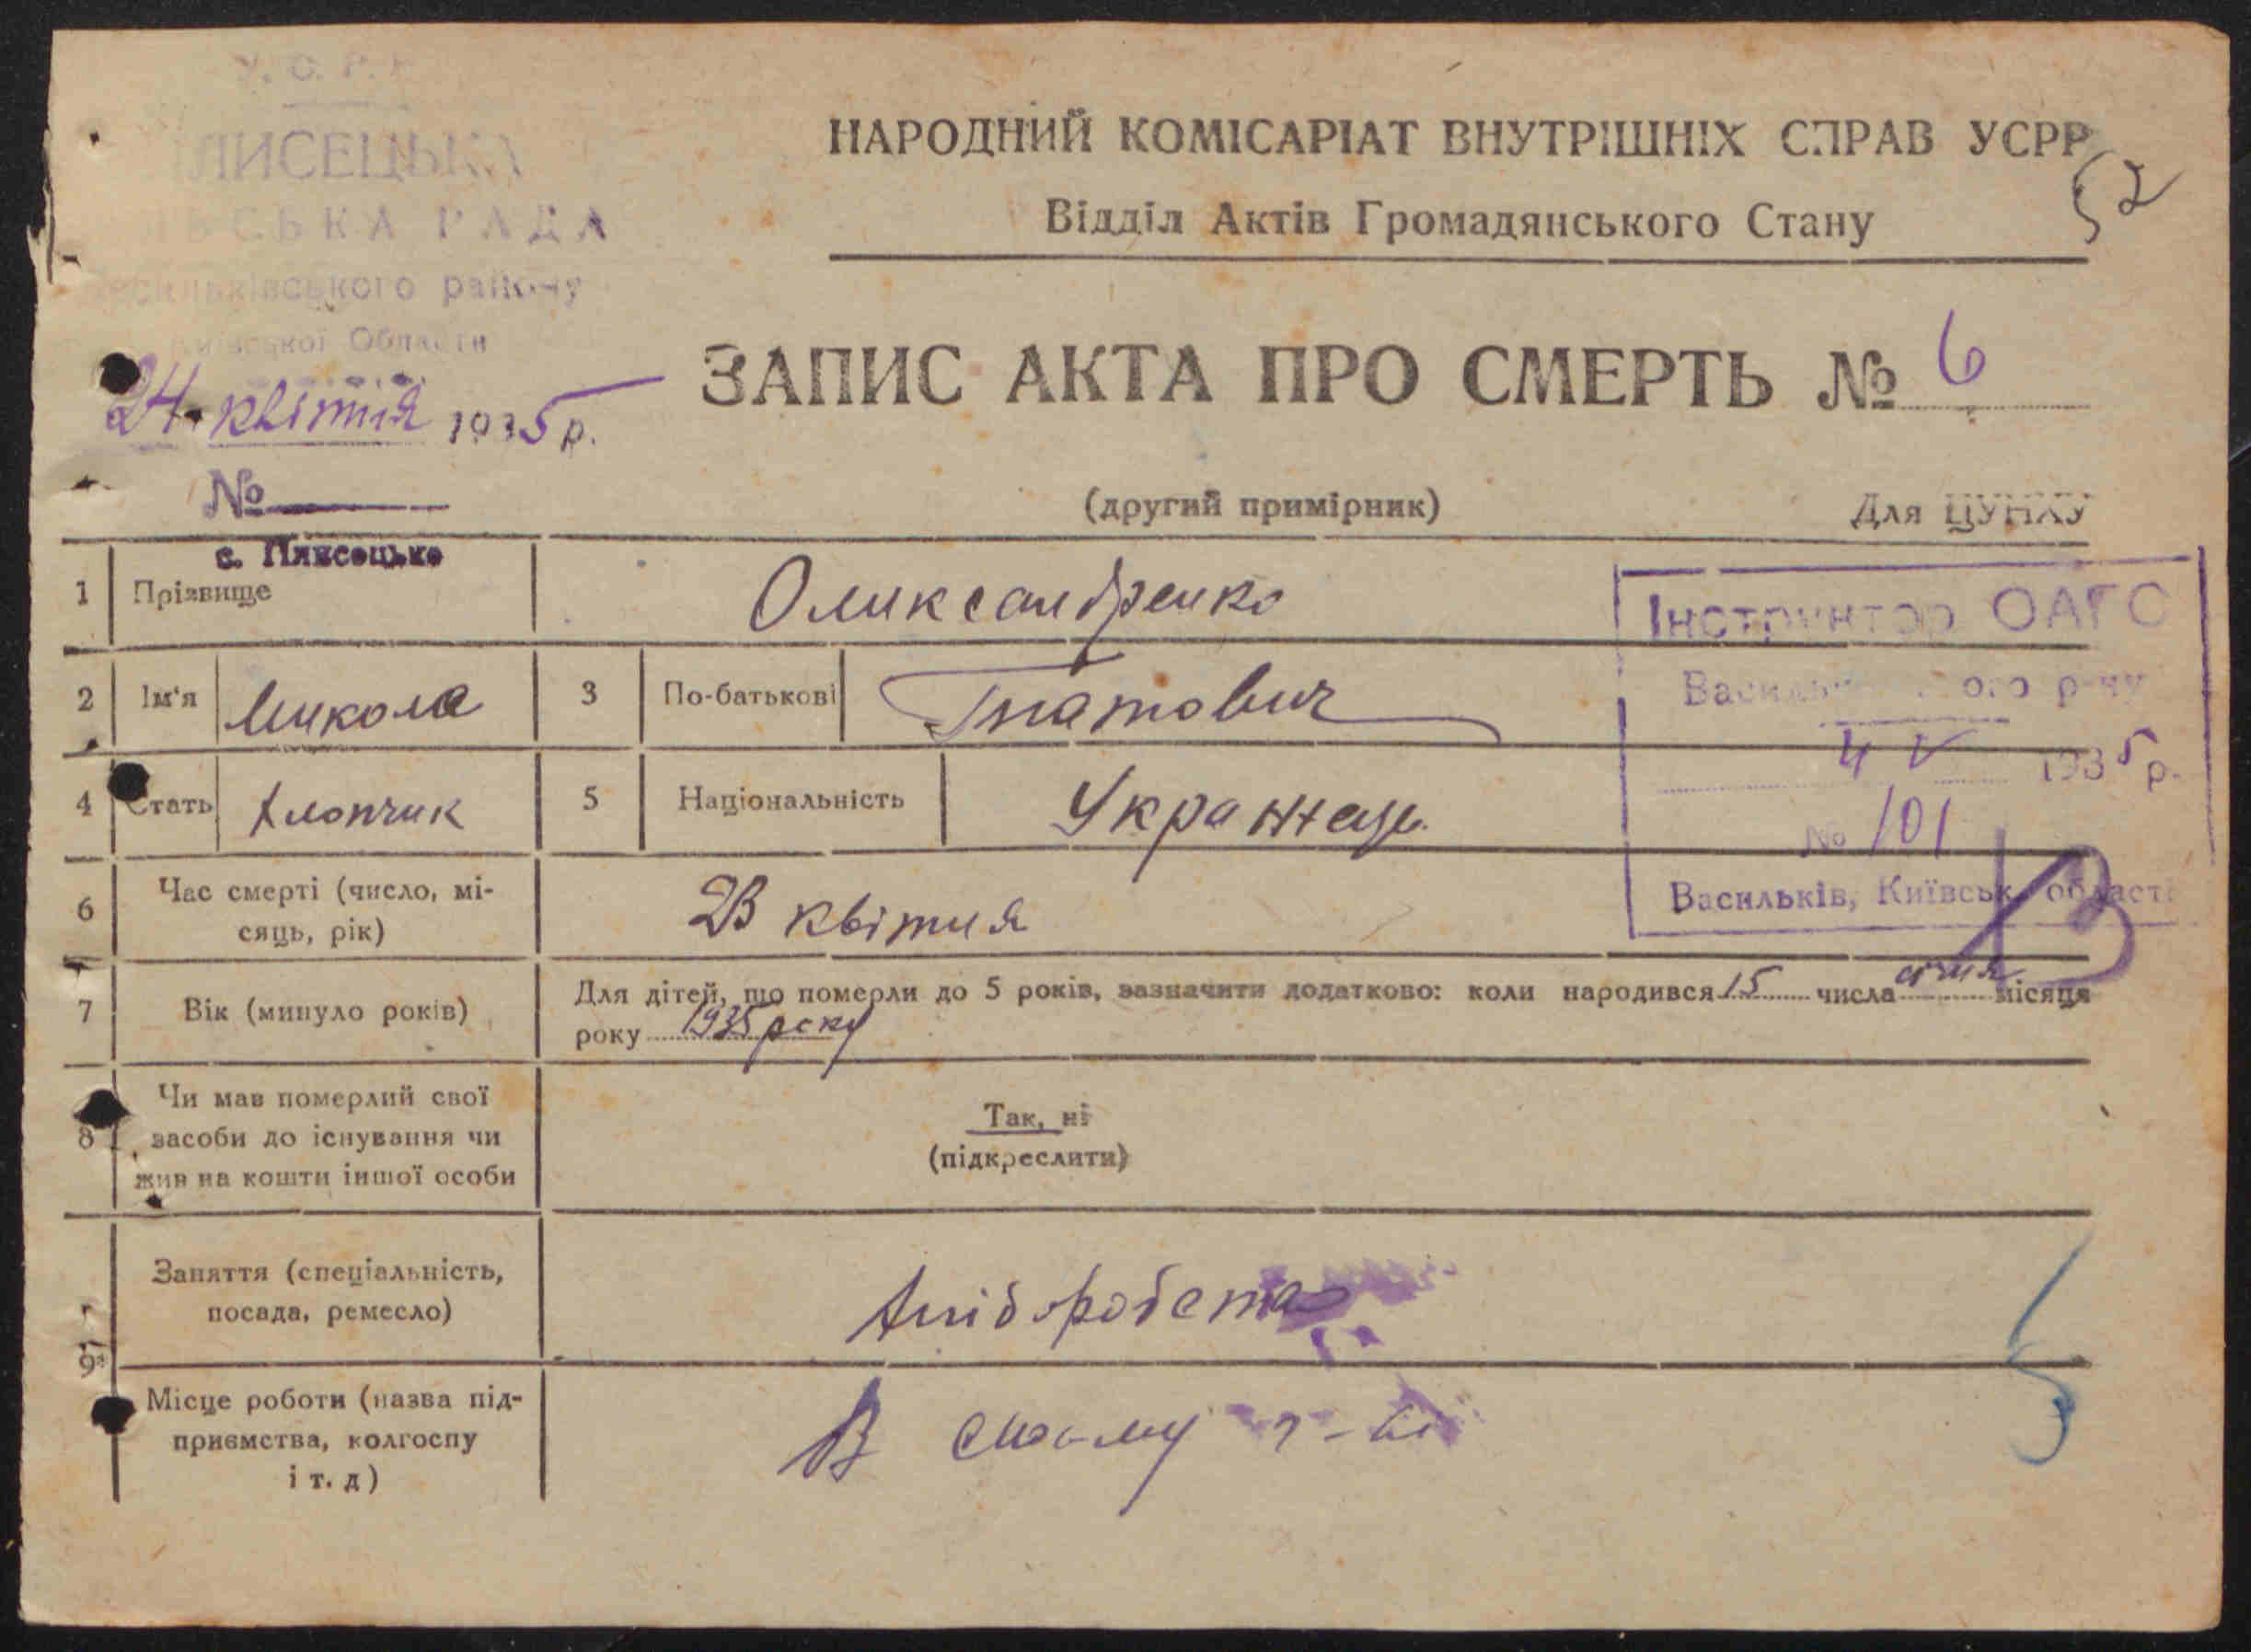 У. С. Р. Р.
ПЛИСЕЦЬКА
СІЛЬСЬКА РАДА
Васильківського району
Київської Области
24 квітня 1935 р.
№
с. Плисецьке
НАРОДНИЙ КОМІСАРІАТ ВНУТРІШНІХ СПРАВ УСРР
52
Відділ Актів Громадянського Стану
ЗАПИС АКТА ПРО СМЕРТЬ № 6
(другий примірник) Для ЦУНХУ
1 Прізвище Олександренко
2 Ім'я Микола 3 По-батькові Гнатович
4 Стать Хлопчик 5 Національність Украінець
Інструктор ОАГС
Васильківського р-ну
4 V 1935 р.
№ 101
Васильків, Київськ. області
6 Час смерті (число, місяць, рік) 23 квітня
7 Вік (минуло років) Для дітей, що померли до 5 років, зазначити додатково: коли народився 15 числа січня місяця
року 1935 року
8 Чи мав померлий свої
засоби до існування чи
жив на кошти іншої особи
Так, ні
(підкреслити)
9 Заняття (спеціальність,
посада, ремесло)
Хлібороб
Місце роботи (назва під-
приємства, колгоспу
і т. д)
В своєму